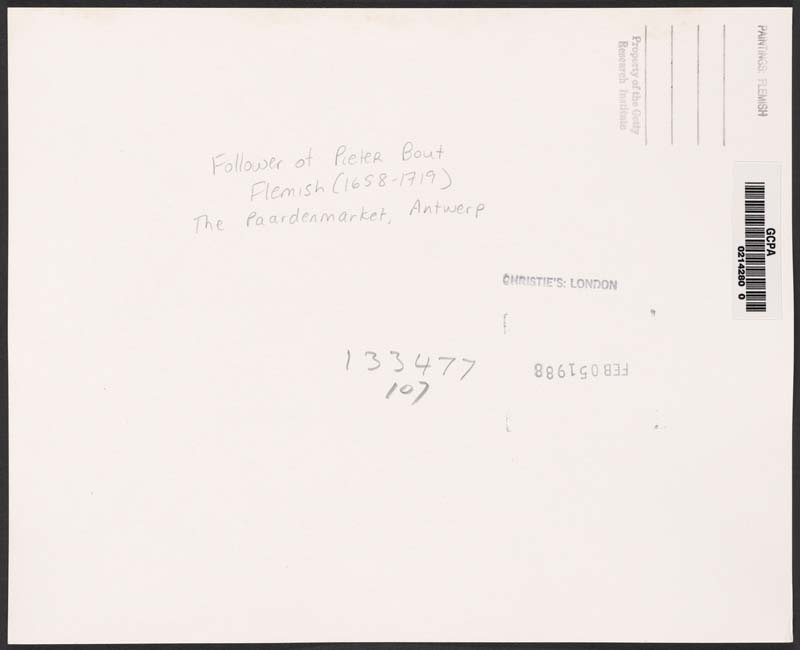 PAINTINGS: FLEMISH
Property of the Getty
Research Institute
Follower of Pieter Bout
Flemish (1658-1719)
The Paardenmarket, Antwerp
GCPA
0214280 0
CHRISTIE'S: LONDON
FEB 05 1988
133477
107